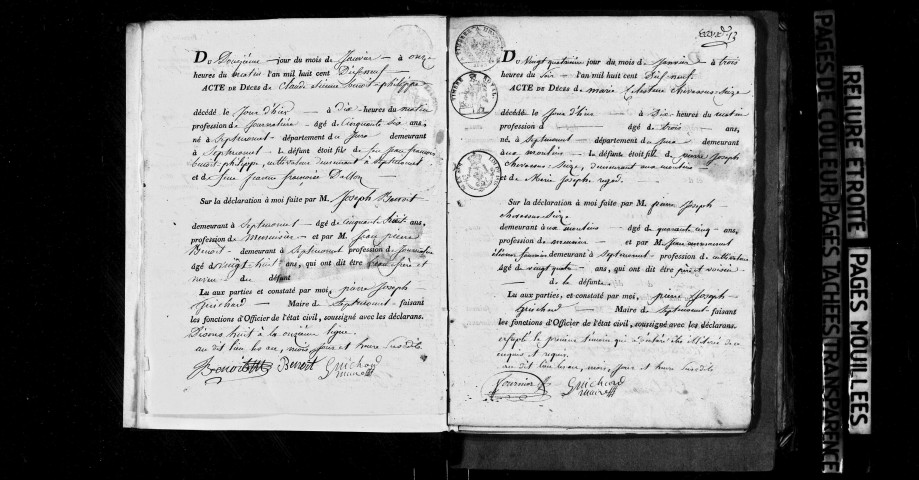 Du Douzième jour du mois de Janvier à onze
heures du matin l'an mil huit cent Dixneuf
ACTE DE DÉCES de Claude Etienne Benoit-philippe
décédé le Jour d'hier à dix heures du matin
profession de Journalier âgé de Cinquante six ans,
né à Septmoncel département du Jura demeurant
à Septmoncel le défunt étoit fils de feu Jean françois
benoit-philippe, cultivateur demeurant à Septmoncel
et de feue Jeanne françoise Dalloz
Sur la déclaration à moi faite par M. Joseph Benoit
demeurant à Septmoncel âgé de cinquante huit ans,
profession de menuisier et par M. Jean pierre
Benoit demeurant à Septmoncel profession de Journalier
âgé de vingt-huit ans, qui ont dit être beau frère et
neveu du défunt
Lu aux parties, et constaté par moi, pierre Joseph
Guichard Maire de Septmoncel faisant
les fonctions d'Officier de l'état civil, soussigné avec les déclarans.
Disons huit à la onzième ligne.
au dit lieu les an, mois Jour et heure susdits
Benoit Benoit Guichard
maire
13
Du Vingt quatrième jour du mois de Janvier à trois
heures du soir l'an mil huit cent Dixneuf
ACTE DE DÉCES de marie Christine chevassus-Seize
décédé le Jour d'hier à Dix heures du matin
profession d âgé de trois ans,
né à Septmoncel département du Jura demeurant
aux moulins le défunt étoit fils de pierre Joseph
chevassus-Seize, demeurant aux moulins
et de Marie Joseph regad
Sur la déclaration à moi faite par M. pierre Joseph
chevassus-Seize
demeurant aux moulins âgé de quarante cinq ans,
profession de meunier et par M. Jean
étienne fournier demeurant à Septmoncel profession de cultivateur
âgé de vingt quatre ans, qui ont dit être père et voisin
de la défunte
Lu aux parties, et constaté par moi, pierre Joseph
Guichard Maire de Septmoncel faisant
les fonctions d'Officier de l'état civil, soussigné avec les déclarans.
excepté le premier témoin qui a déclaré être illitéré de ce
enquis et requis.
au dit lieu les an, mois, jour et heure susdits
fournier Guichard
maire
RELIURE ETROITE
PAGES MOUILLEES
PAGES DE COULEUR
PAGES TACHEES
TRANSPARENCE